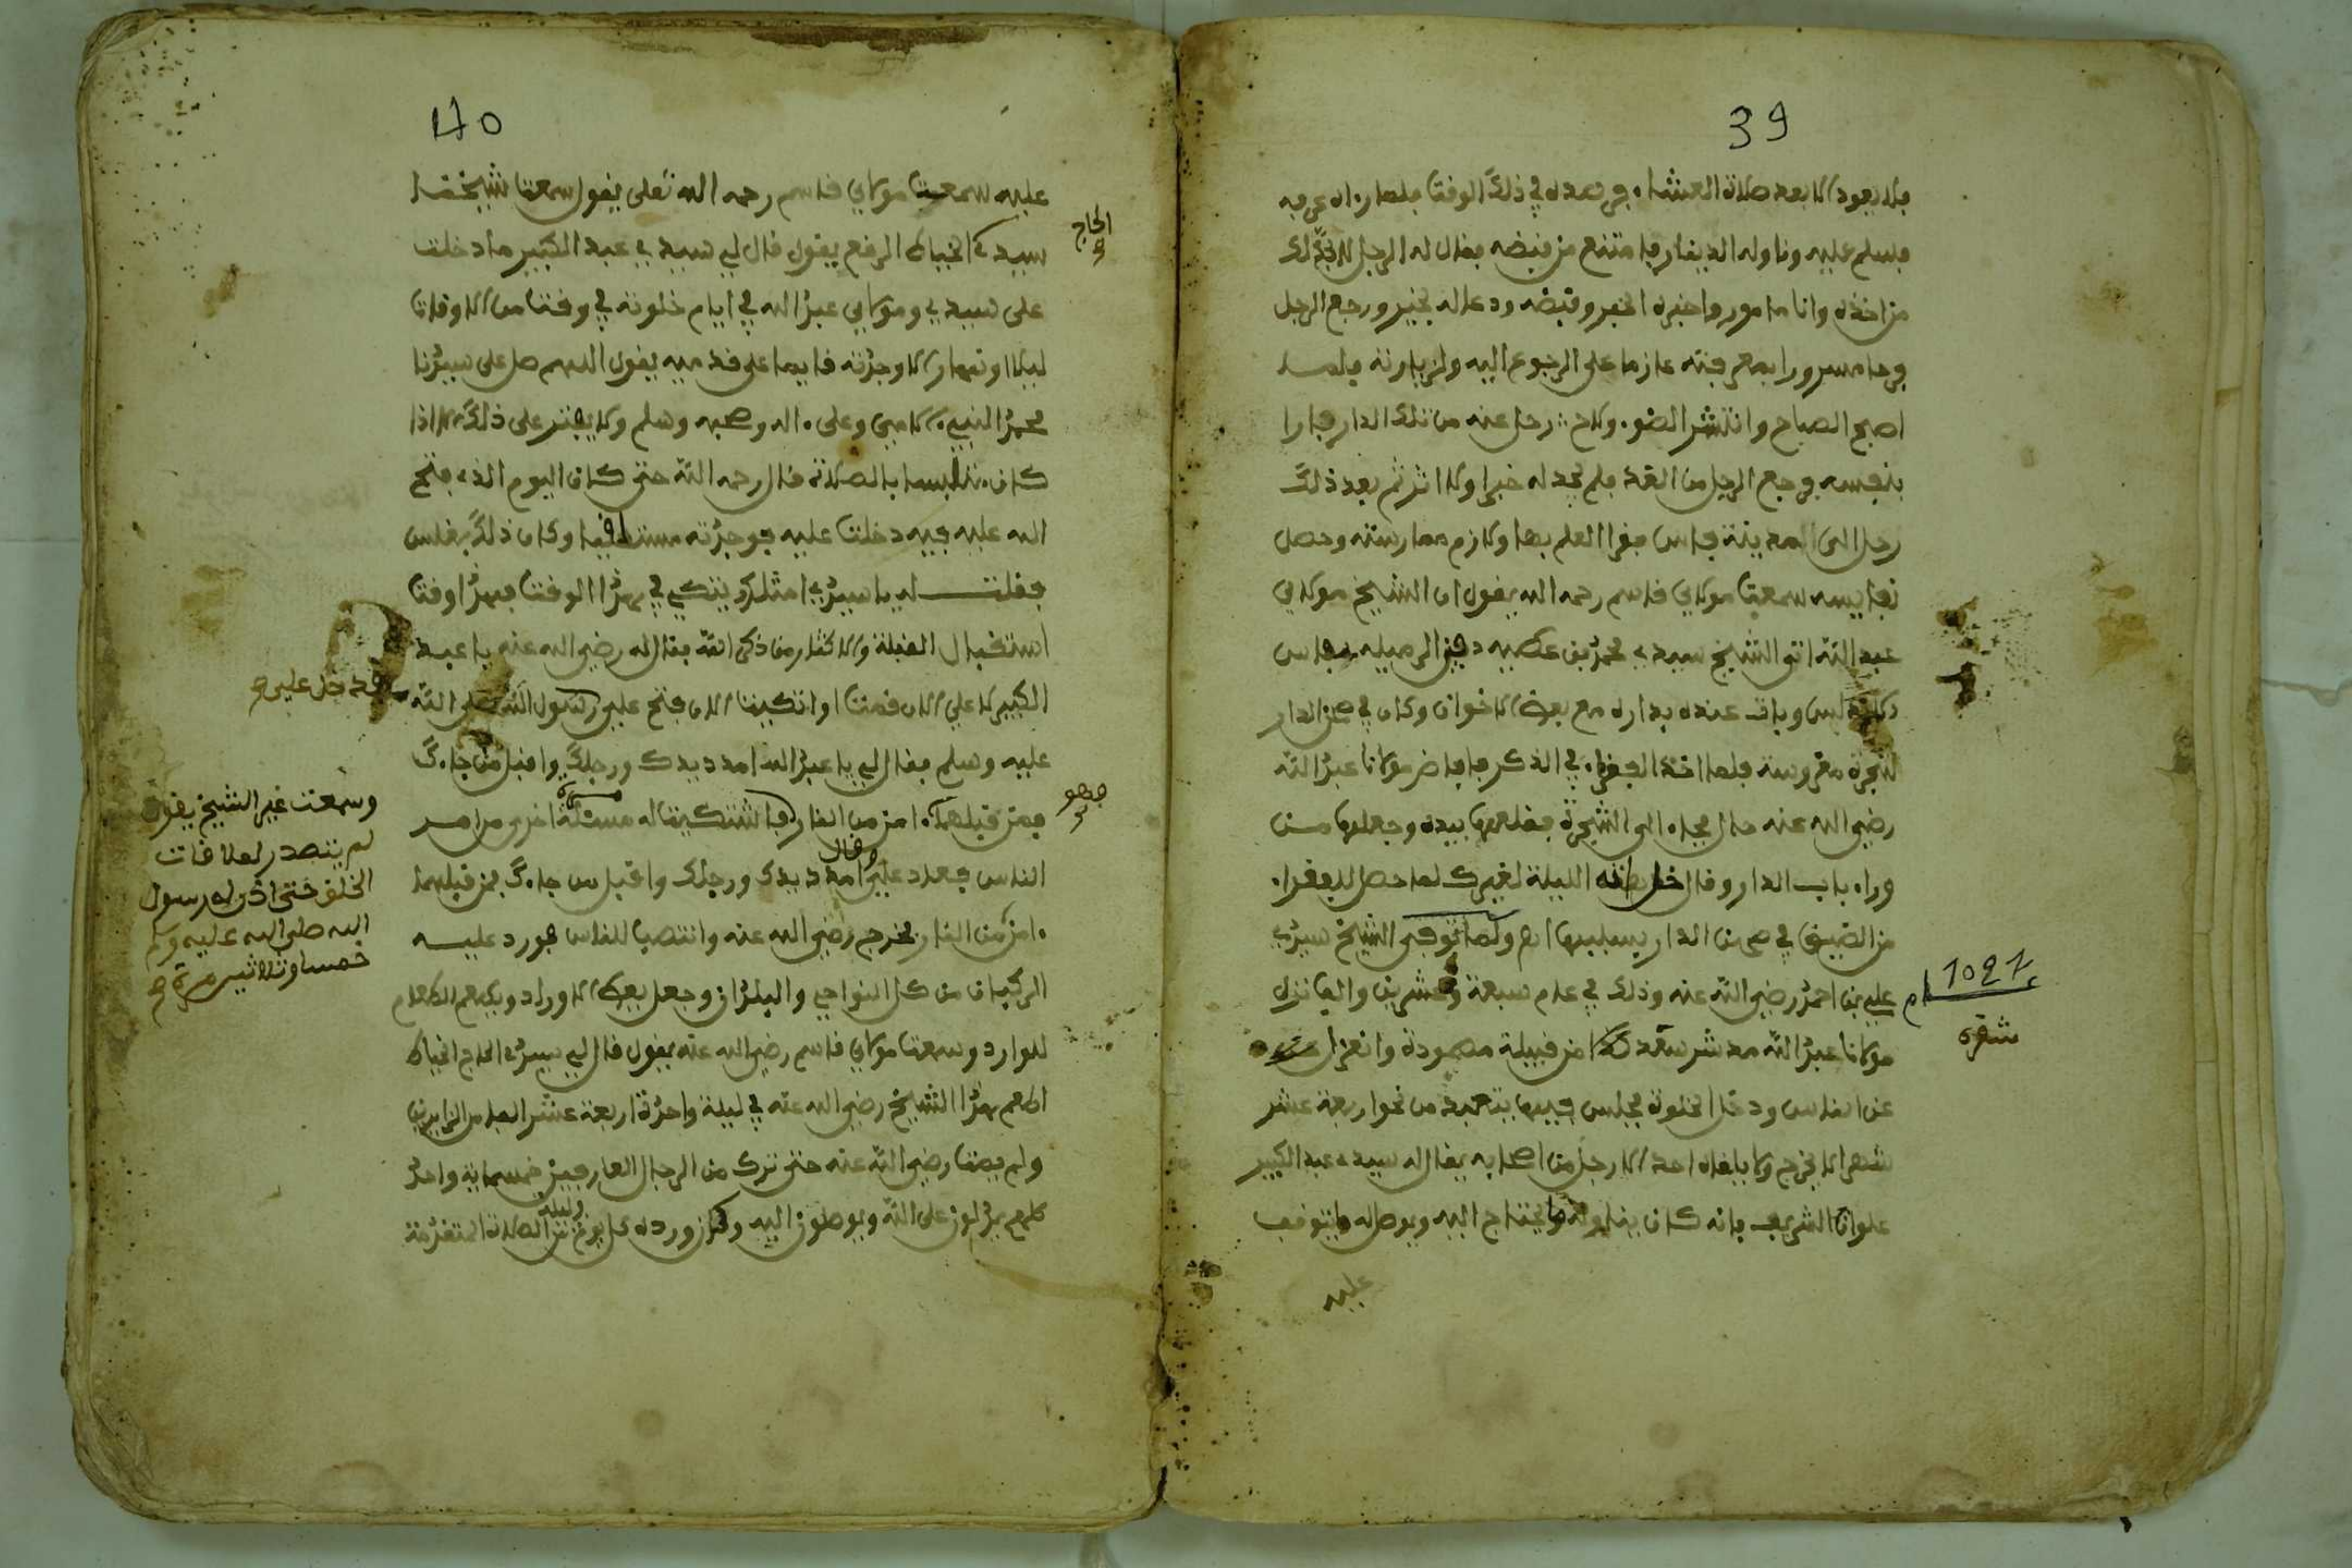 39
فلا يعود الا بعد صلاة العشاء فرصده في ذلك الوقت فلما راه عرفه
فسلم عليه وناوله الدينار فامتنع من قبضه فقال له الرجل لا بد لك
من اخذه وانا مامور واخبره الخبر وقبضه ودعا له بخير ورجع الرجل
فرحا مسرورا بمعرفته عازما على الرجوع اليه ولزيارته فلمــا
اصبح الصباح وانتشر الضوء ولاح رحل عنه من تلك الدار فارا
بنفسه فرجع الرجل من الغد فلم يجد له خبرا ولا اثر ثم بعد ذلك
رحل الى المدينة فاس فقرا العلم بها ولازم ممارسته وحصل
نفايسه سمعت مولاي قاسم رحمه الله يقول ان الشيخ مولاي
عبد الله اتى الشيخ سيدي محمد بن عطيه دفين الرميله بفاس
وبات عنده بداره مع بعض الاخوان وكان في صحن الدار
شجرة مغروسة فلما اخذ الفقراء في الذكر فافاض مولانا عبد الله
رضي الله عنه حال فجاء الى الشجرة فقلعها بيده وجعلها مـن
وراء باب الدار وقال الليلة لغيرك لما حصل للفقراء
من الضيق في صحن الدار بسببها اهـ ولما توفي الشيخ سيدي
علي بن احمد رضي الله عنه وذلك في عام سبعة وعشرين والف نزل
1027 ام
مولانا عبد الله مدشر من قبيلة مصمودة وانعزل
شقرة
عن الناس ودخل الخلوة فجلس فيها يتعبد من نحو اربعة عشر
شهرا لا يخرج ولا يلقاه احد الا رجل من اصحابه يقال له سيدي عبد الكبير
علوان الشريف فانه كان يناوله ما يحتاج اليه ويوصله ما يتوقف
عليه
40
عليه سمعت مولاي قاسم رحمه الله تعلى يقول سمعت شيخنــا
الحاج
سيدي الخياط الرقع يقول قال لي سيدي عبد الكبير ما دخلت
على سيدي ومولاي عبد الله في ايام خلوته في وقت من الاوقات
ليلا او نهارا الا وجدته قايما على قدميه يقول اللهم صل على سيدنا
محمد النبي الامي وعلى ءاله وصحبه وسلم ولا يفتر على ذلك الا اذا
كان متلبسا بالصلاة قال رحمه الله حتى كان اليوم الذي فتح
الله عليه فيه دخلت عليه فوجدته مستلقيا وكان ذلك بغلس
فقلــت له يا سيدي امثلك يتكي في هذا الوقت فهذا وقت
استقبال القبلة والاكثار من ذكر الله فقال له رضي الله عنه يا عبد
الكبير لا علي الان قمت او اتكيت الان فتح علي رسول الله صلى الله
قد دخل علي صح
عليه وسلم فقال لي يا عبد الله امدد يدك ورجلك واقبل من جاءك
فهو
فمن قبلهما ءامن من النار فاشتكيت له مسئلة اخرى من امر
الناس فعاد علي وقال امدد يدك ورجلك واقبل من جاءك فمن قبلهما
ءامن من النار فخرج رضي الله عنه وانتصب للناس فورد عليــه
الركبان من كل النواحي والبلدان وجعل يعطي الاوراد ويطعم الطعام
للوارد وسمعت مولاي قاسم رضي الله عنه يقول قال لي سيدي الحاج الخياط
اطعم هذا الشيخ رضي الله عنه في ليلة واحدة اربعة عشر الفا من الزايرين
ولم يمت رضي الله عنه حتى ترك من الرجال العارفين خمسماية واحد
كلهم يدلون على الله ويوصلون اليه وكان ورده كل يوم وليلة من الصلاة المتقدمة
وسمعت غير الشيخ يقول
لم يتصدر لملاقات
الخلق حتى اذن له رسول
الله صلى الله عليه وسلم
خمسا وثلاثين مرة صح